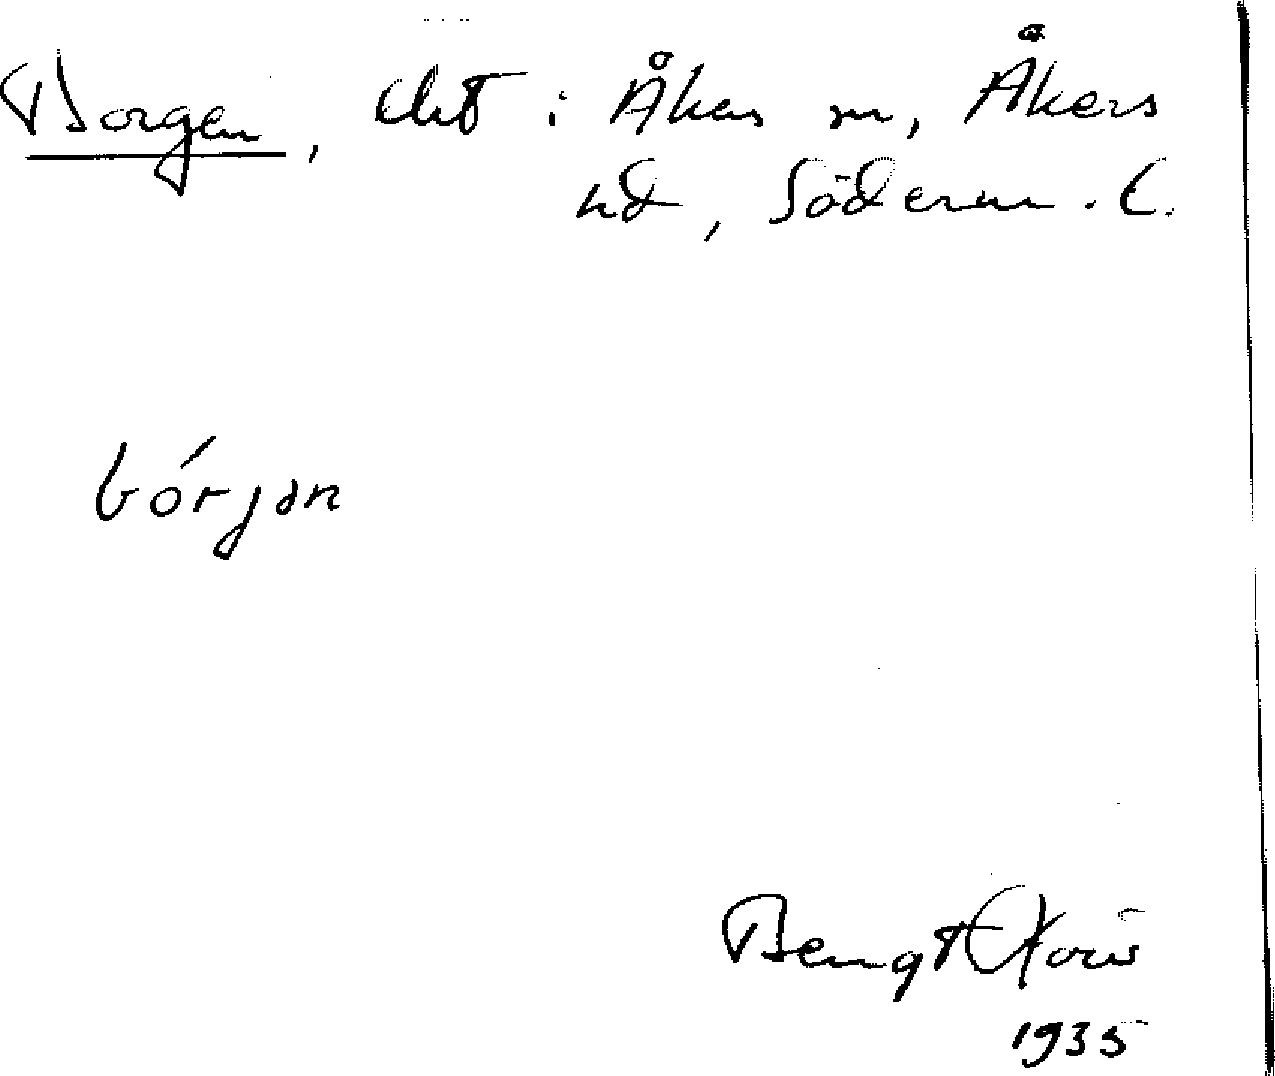 Borgen, i Åkers sn, Åkers
hd, Söderm. l.
bórjan
Bengt
1935